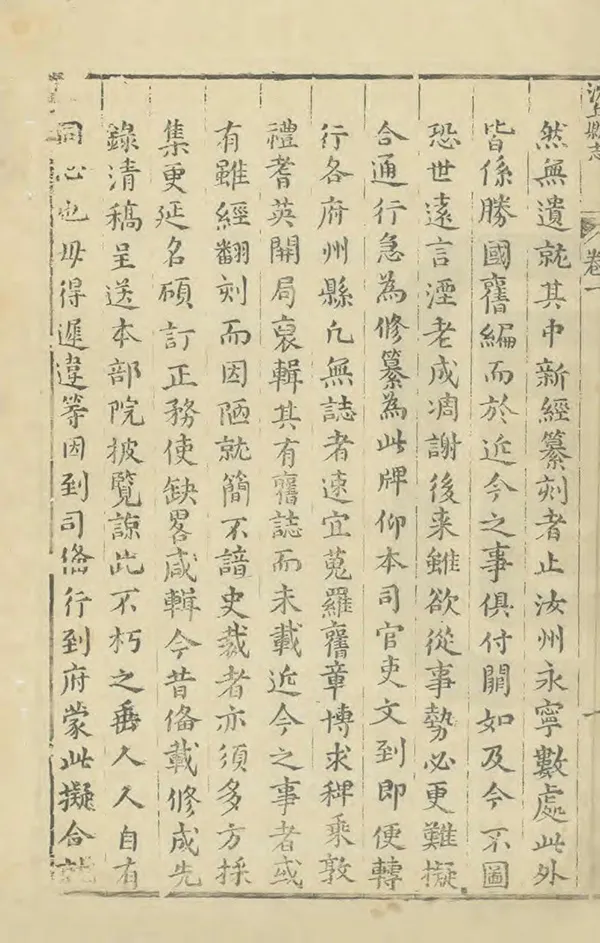 上縣志
卷一
然無遺就其中新經纂刻者止汝州永寧數處此外
皆係勝國舊編而於近今之事俱付闕如及今不圖
恐世遠言湮老成凋謝後来雖欲從事勢必更難擬
合通行急為修纂為此牌仰本司官吏文到即便轉
行各府州縣凡無誌者速宜蒐羅舊章博求稗乘敦
禮耆英開局裒輯其有舊誌而未載近今之事者或
有雖經翻刻而因陋就簡不諳史裁者亦須多方採
集更延名碩訂正務使缺畧咸輯今昔俻載修成先
錄清稿呈送本部院披覽諒此不朽之垂人人自有
同心也毋得遲違等因到司俻行到府蒙此擬合就